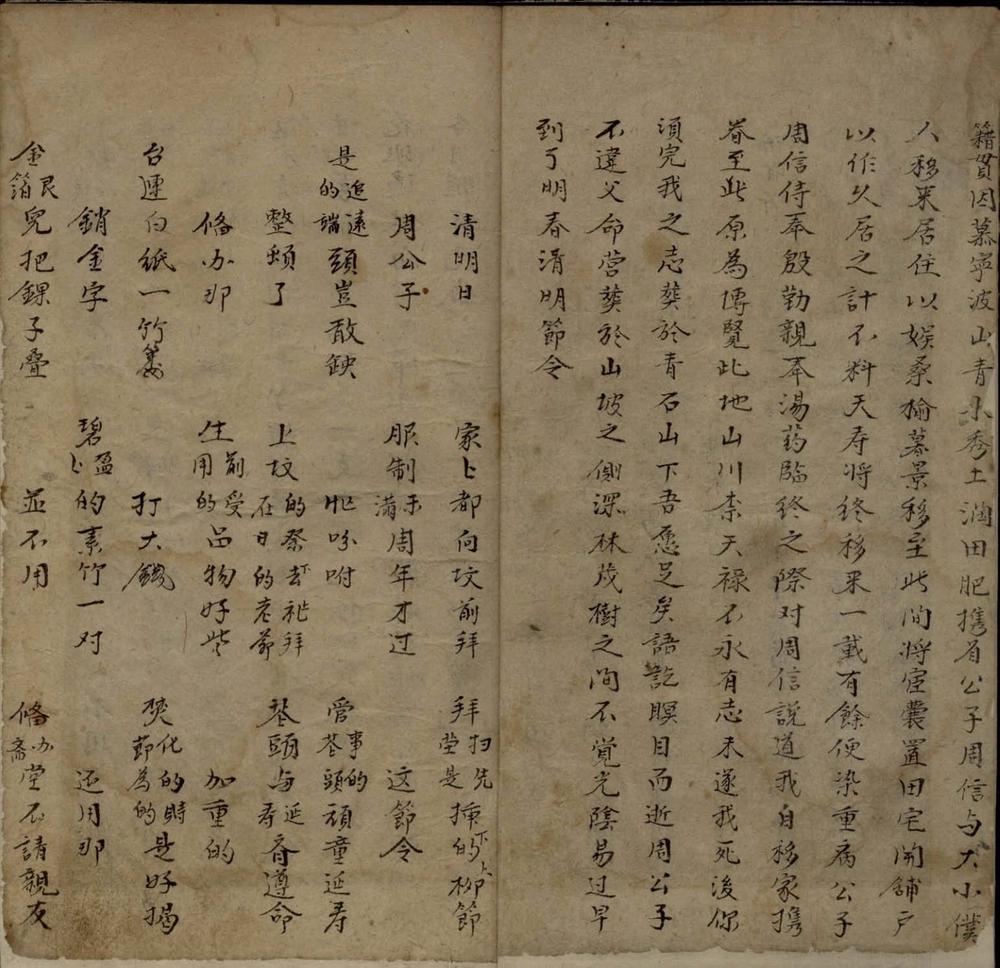 籍貫因慕寧波山青水秀土潤田肥携眷公子周信与大小僕
人移來居住以娛桑榆暮景移至此間將宦囊置田宅開舖戶
以作久居之計不料天寿將終移來一載有餘便染重病公子
周信侍奉殷勤親奉湯药臨終之際对周信説道我自移家携
眷至此原為博覽此地山川柰天禄不永有志未遂我死後你
須完我之志葬於青石山下吾愿足矣語訖瞑目而逝周公子
不違父命营葬於山坡之側深林茂樹之间不覺光陰易过早
到了明春清明節令
清明日 家上都向坟前拜 拜扫先茔是插的柳節
周公子 服制未满周年才过 这節令
是追的遠端頭豈敢缺 忙吩咐 管事的苍頭頑童延寿
整頓了 上坟的祭祀拜 苍頭与延寿齐遵命
俻办那 生前受用的品物好些 加重的
台連白紙一竹篓 打大錢 焚化的時節為的是好揭
銷金字 碧上的素竹一对 还用那
金銀箔兒把錁子疊 並不用 俻办斋堂不請親友